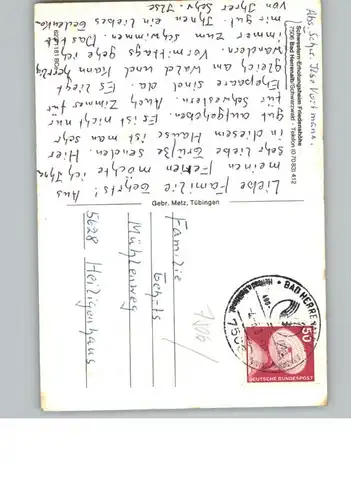 Liebe Familie Gehrts! Aus
meinen Ferien möchte ich Ihnen
sehr liebe Grüße senden. Hier
in diesem Hause ist man sehr
gut aufgehoben. Es ist nicht nur
für Schwestern. Auch Zimmer für
Ehepaare sind da. Es liegt
gleich am Wald und kann herrlich
wandern. Vormittags gehe ich
immer zum schwimmen. Das tut
mir gut. Ihnen ein liebes Gedenken
von Ihrer Schw. Ilse
Abs. Schw. Ilse Vortmann.
Schwestern-Erholungsheim Friedenshöhe
7506 Bad Herrenalb/Schwarzwald · Telefon (0 70 83) 412
Gebr. Metz, Tübingen
Familie
Gehrts
Mühlenweg
5628 Heiligenhaus
7506
BAD HERRENALB
7506
50
DEUTSCHE BUNDESPOST